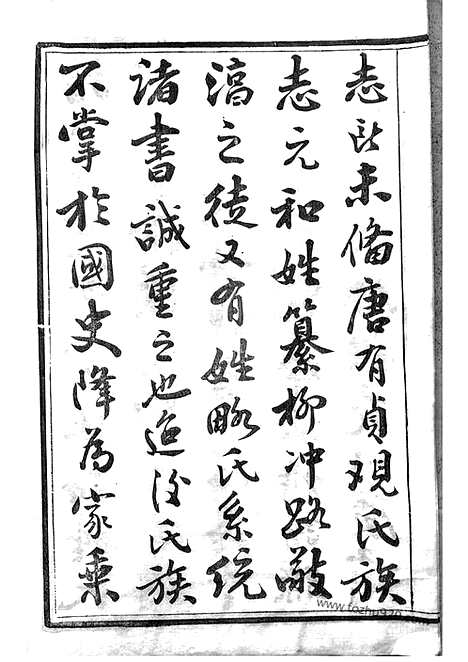 志所未備唐有貞觀氏族
志元和姓纂柳冲路敬
淳之徒又有姓略氏系統
諸書誠重之也迨後氏族
不掌於國史降為家乘
www.fozhu920